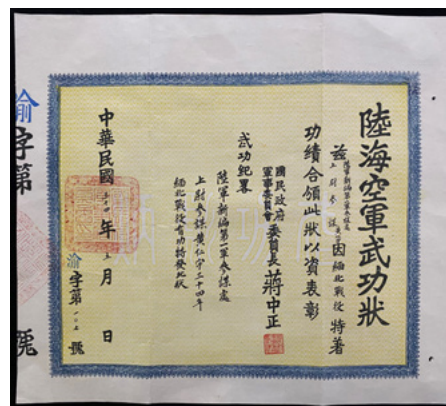 陸海空軍武功狀
茲
因緬北戰役特著
功績合領此狀以資表彰
國民政府
軍事委員會委員長蔣中正
武功紀畧
陸軍新編第一軍參謀處
上尉參謀黃仁宇三十四年
緬北戰役有功特發此狀
中華民國
年
月
日
渝字第
號
渝字第
號